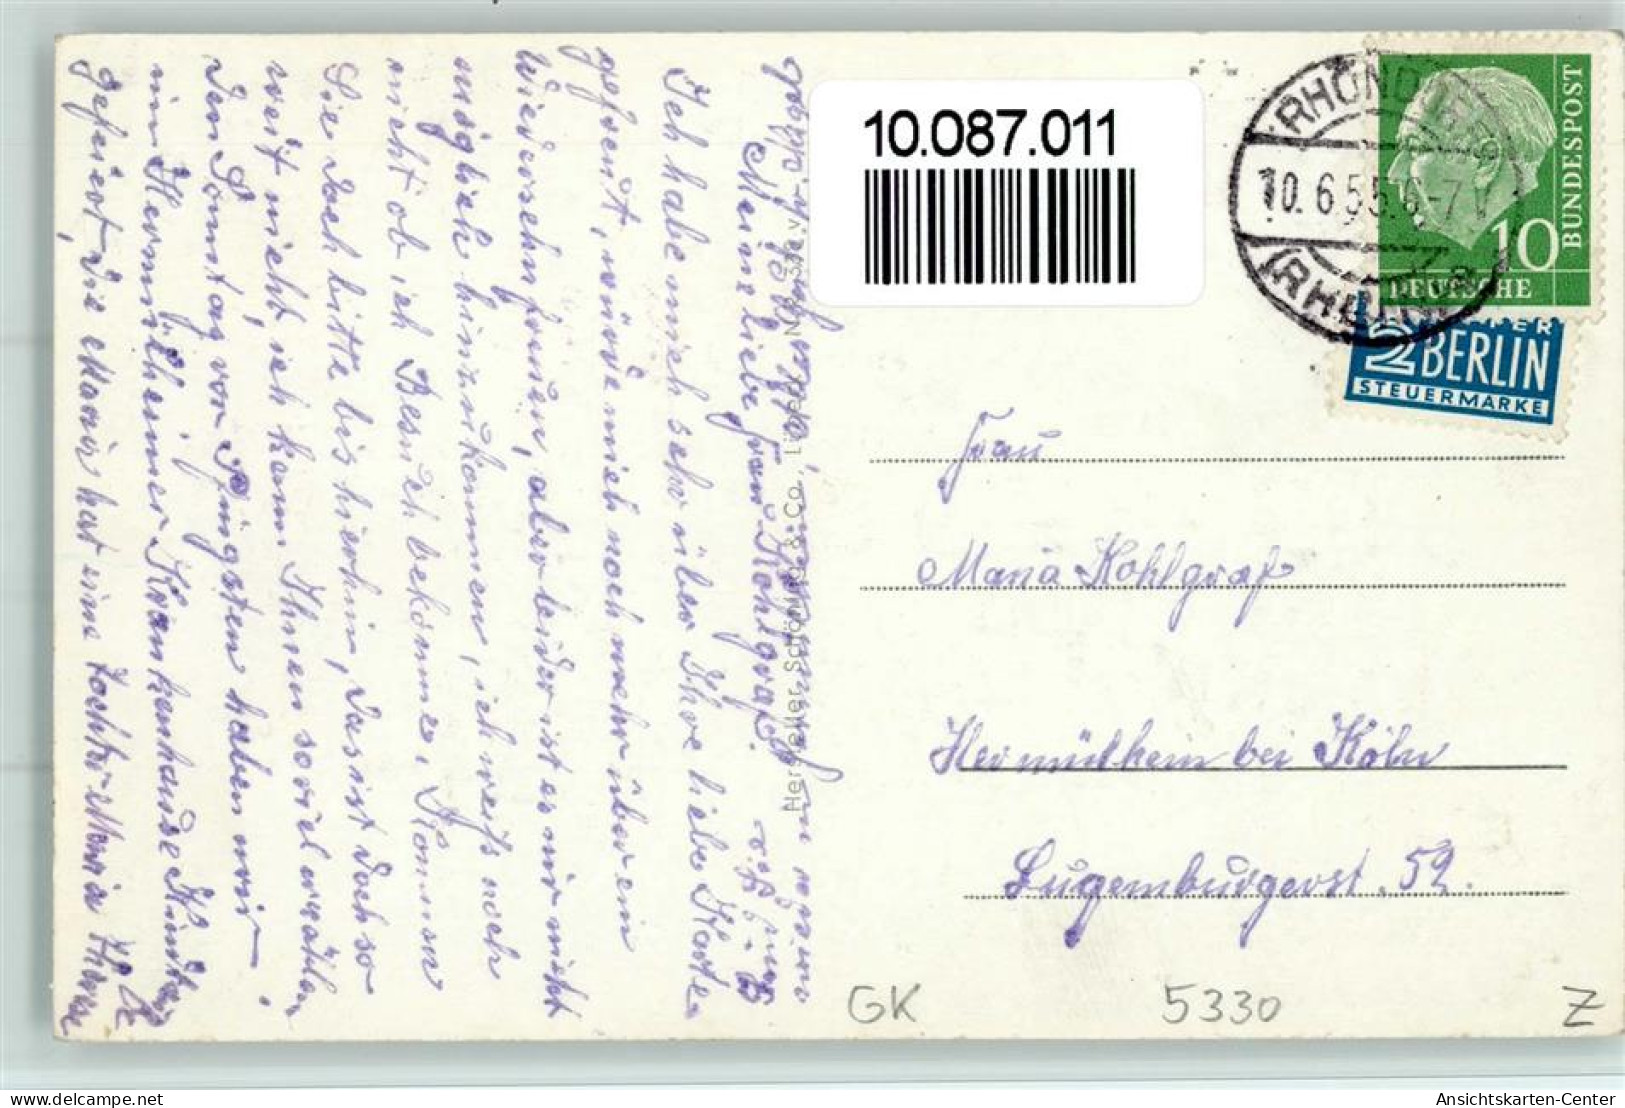 10.087.011
RHÖNDORF
10.6.55.6-7
(RHEIN)
DEUTSCHE
BUNDESPOST
10
NOTOPFER
2 BERLIN
STEUERMARKE
Frau
Maria Kohlgraf
Hermülheim bei Köln
Luxemburgerst. 52.
GK 5330 Z
Hersteller Schöning & Co. Lübeck
Meine liebe Frau Kohlgraf!
Ich habe mich sehr über Ihre liebe Karte
gefreut, würde mich noch mehr über ein
Wiedersehn freuen, aber leider ist es mir nicht
möglich hinzukommen, ich weiß noch
nicht ob ich Besuch bekomme. Kommen
Sie doch bitte bis hierhin, das ist doch so
weit nicht, ich kann Ihnen soviel erzählen
Den Sonntag vor Pfingsten haben wir
im Hermülheimer Krankenhause
gefeiert die Maria hat eine Tochter Maria
delcampe.net
Ansichtskarten-Center